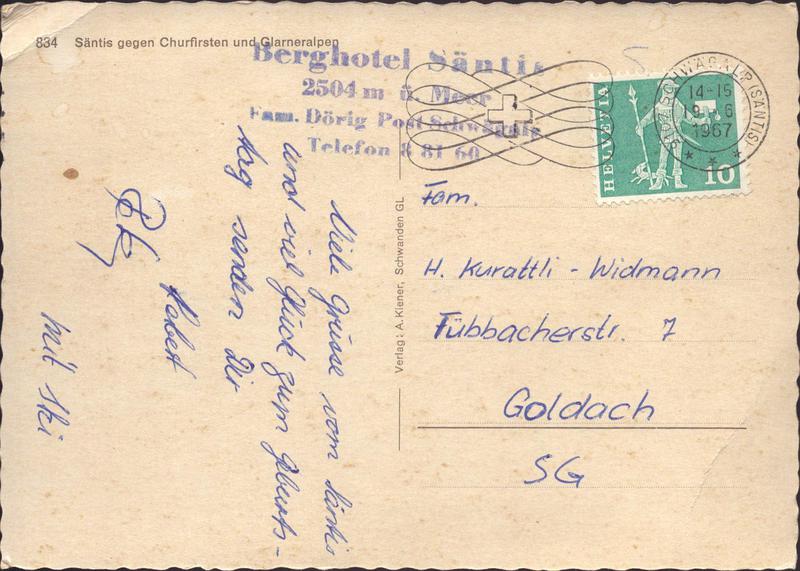 834 Säntis gegen Churfirsten und Glarneralpen
Berghotel Säntis
2504 m ü. Meer
Fam. Dörig Post Schwägalp
Telefon 8 81 60
SCHWÄGALP (SÄNTIS)
14-15
1967
HELVETIA
10
Viele Grüsse vom Säntis
und viel Glück zum Geburts-
tag senden Dir
Robert
mit Ski
Verlag: A. Kiener, Schwanden GL
Fam.
H. Kurattli - Widmann
Tübbacherstr. 7
Goldach
SG